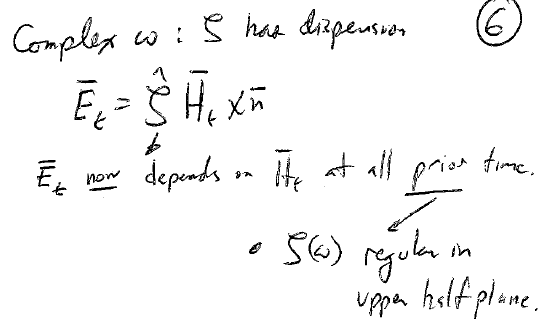 Complex ω : ζ has dispersion ⑥
Ē_t = ζ̂ H̄_t × n̄
Ē_t now depends on H̄_t at all prior time.
• ζ(ω) regular in
upper half plane.